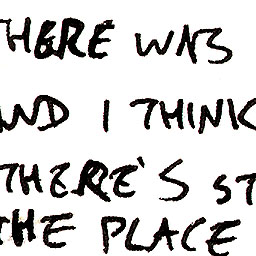 THERE WAS
AND I THINK
THERE'S ST
THE PLACE